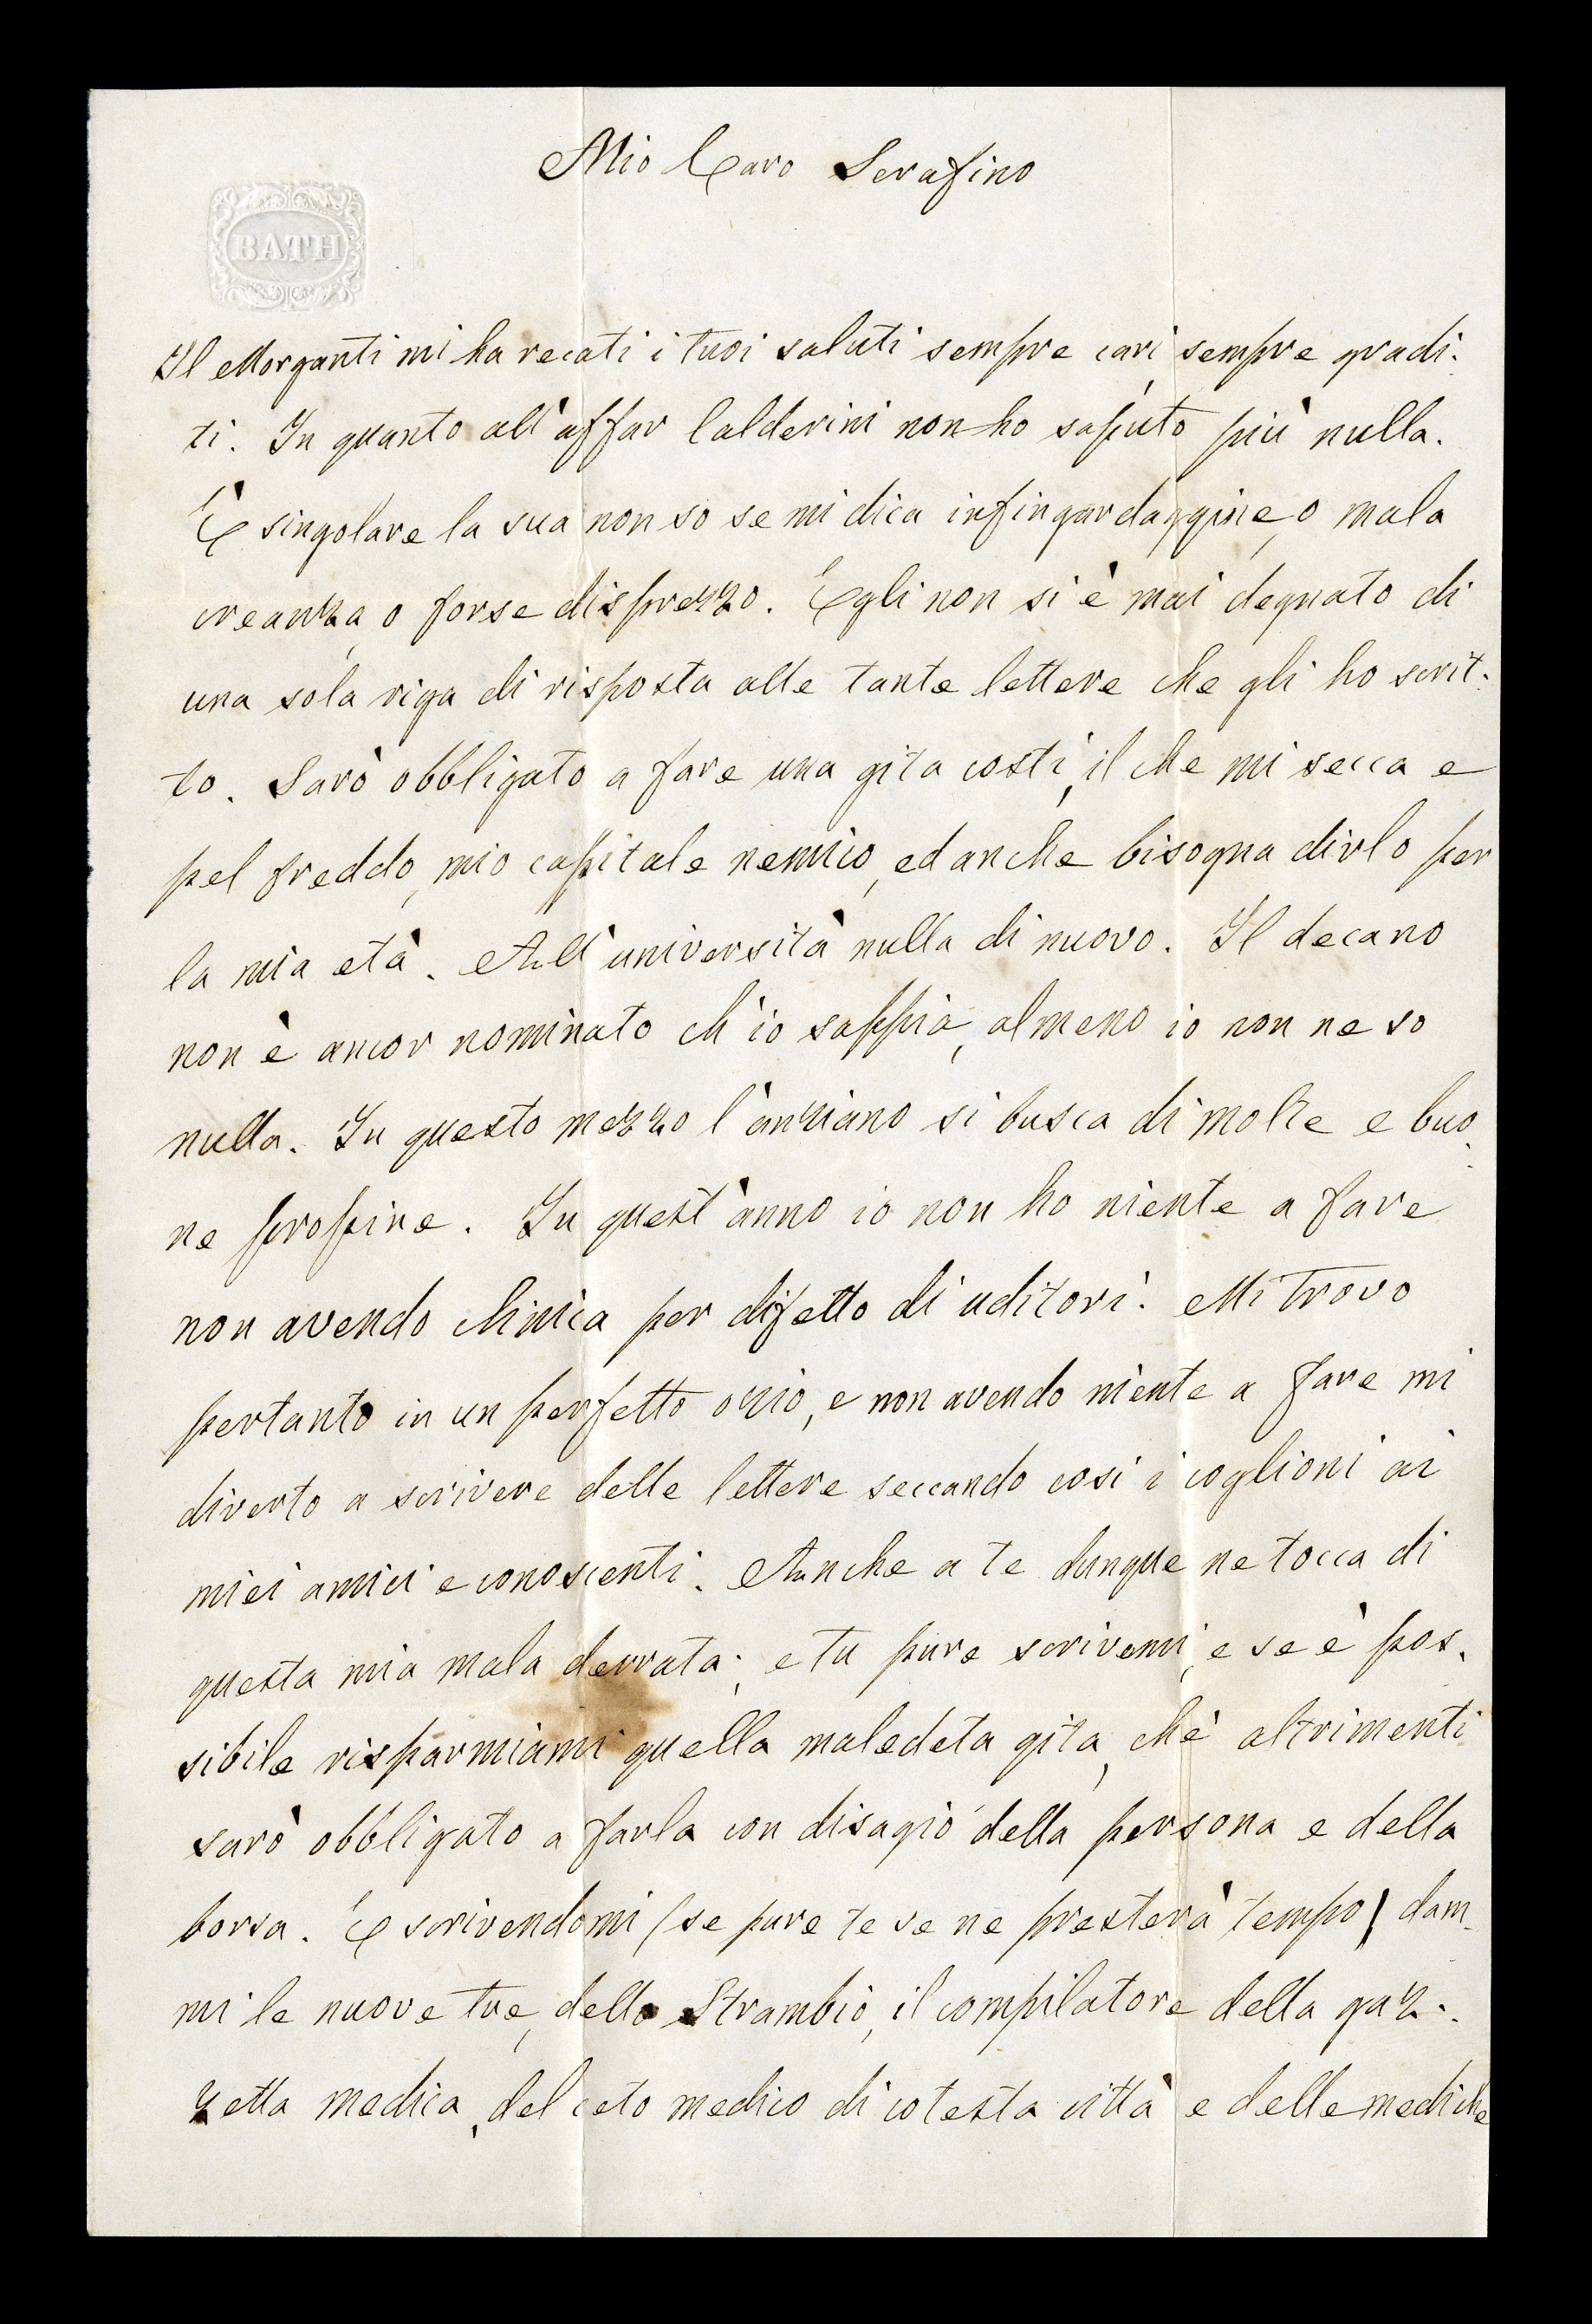 Mio Caro Serafino
BATH
Il Morganti mi ha recati i tuoi saluti sempre cari, sempre gradi-
ti. In quanto all'affar Calderini non ho saputo più nulla.
È singolare la sua non so se mi dica infingardaggine, o mala
creanza, o forse disprezzo. Egli non si è mai degnato di
una sola riga di risposta alle tante lettere che gli ho scrit-
to. Sarò obbligato a fare una gita costì, il che mi secca e
pel freddo, mio capitale nemico, ed anche bisogna dirlo per
la mia età. All'università nulla di nuovo. Il decano
non è ancor nominato ch'io sappia, almeno io non ne so
nulla. In questo mezzo l'anziano si busca di molte e buo-
ne propine. In quest'anno io non ho niente a fare
non avendo clinica per difetto di uditori. Mi trovo
pertanto in un perfetto ozio, e non avendo niente a fare mi
diverto a scrivere delle lettere seccando così i coglioni ai
miei amici e conoscenti. Anche a te dunque ne tocca di
questa mia mala derrata; e tu pure scrivemi, e se è pos-
sibile risparmiami quella maledeta gita, chè altrimenti
sarò obbligato a farla con disagio della persona e della
borsa. E scrivendomi (se pure te se ne presterà tempo) dam-
mi le nuove tue, dello Strambio, il compilatore della gaz-
zetta medica, del ceto medico di cotesta città e delle mediche